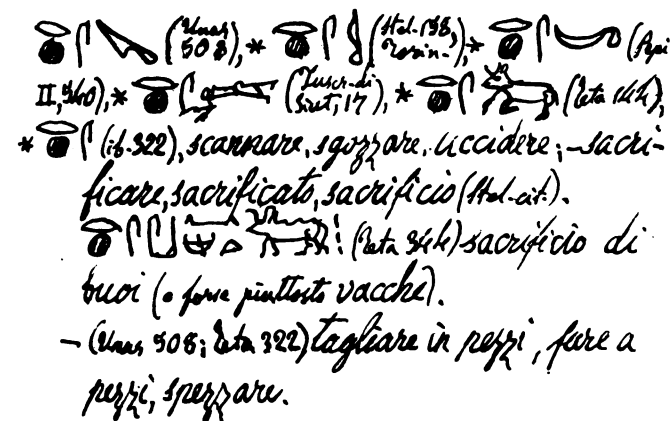 𓂋𓐍𓋴𓌪 (Unas 508), * 𓂋𓐍𓋴 (Stel. 158,), * 𓂋𓐍𓋴 (Pepi
II, 940), * 𓂋𓐍 (Inscr. di Siut, 17), * 𓂋𓐍𓋴 (Teta 144),
* 𓂋𓐍𓋴 (ib. 322), scannare, sgozzare, uccidere; – sacri-
ficare, sacrificato, sacrificio (Stel. cit.).
𓂋𓐍𓋴 (Teta 344) sacrificio di
buoi (o forse piuttosto vacche).
– (Unas 508; Teta 322) tagliare in pezzi, fare a
pezzi, spezzare.